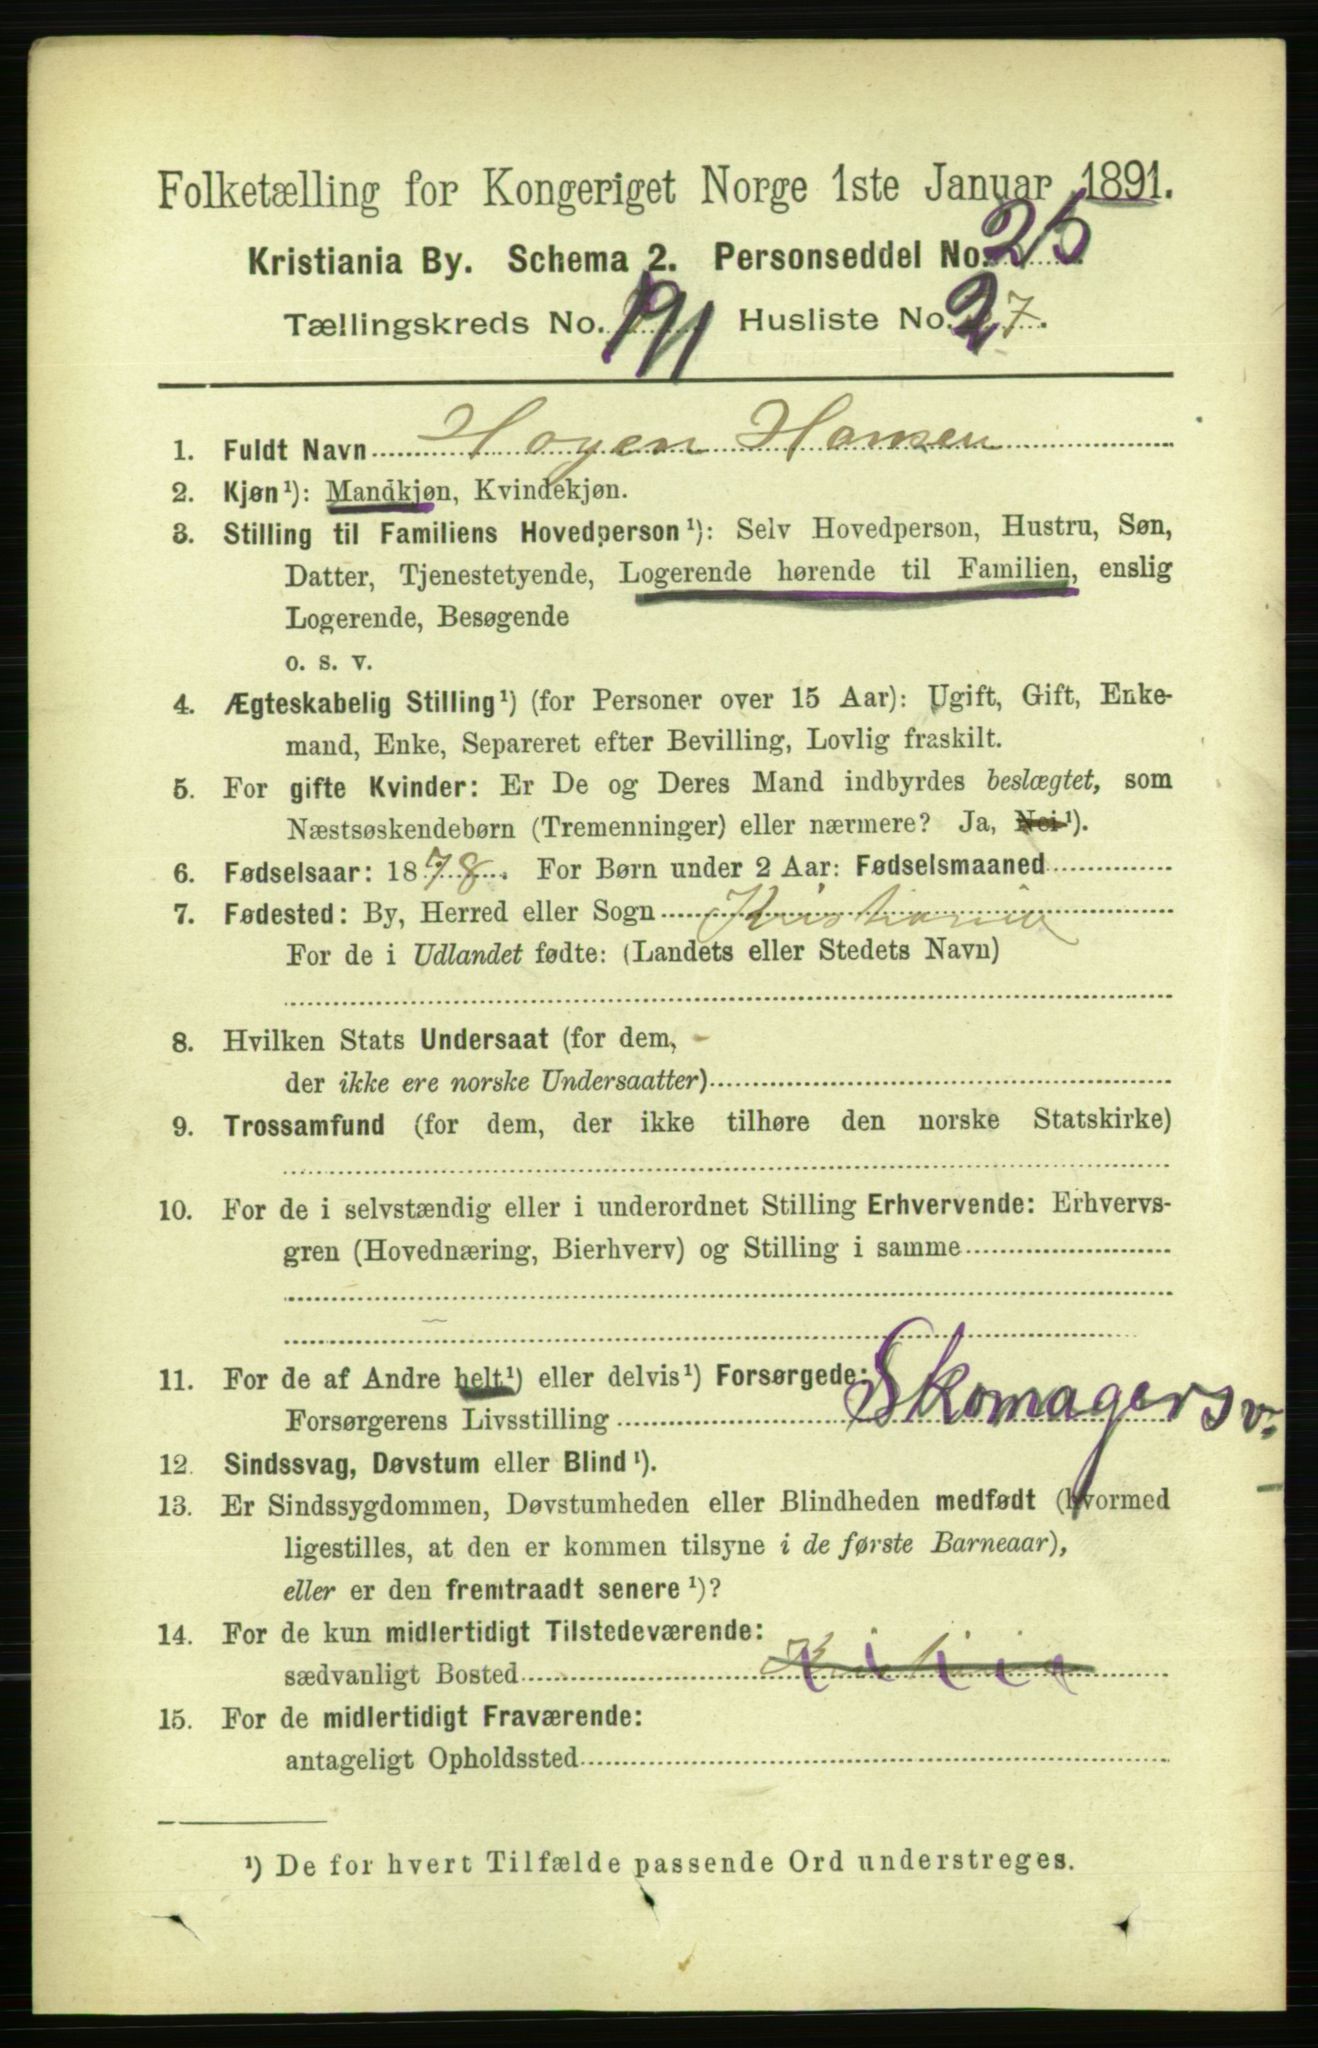 Folketælling for Kongeriget Norge 1ste Januar 1891.
Kristiania By. Schema 2. Personseddel No. 25
Tællingskreds No. 191 Husliste No. 27.
1. Fuldt Navn Hansen
2. Kjøn¹): Mandkjøn, Kvindekjøn.
3. Stilling til Familiens Hovedperson¹): Selv Hovedperson, Hustru, Søn,
Datter, Tjenestetyende, Logerende hørende til Familien, enslig
Logerende, Besøgende
o. s. v.
4. Ægteskabelig Stilling¹) (for Personer over 15 Aar): Ugift, Gift, Enke-
mand, Enke, Separeret efter Bevilling, Lovlig fraskilt.
5. For gifte Kvinder: Er De og Deres Mand indbyrdes beslægtet, som
Næstsøskendebørn (Tremenninger) eller nærmere? Ja, Nei¹).
6. Fødselsaar: 1878. For Børn under 2 Aar: Fødselsmaaned
7. Fødested: By, Herred eller Sogn Kristiania
For de i Udlandet fødte: (Landets eller Stedets Navn)
8. Hvilken Stats Undersaat (for dem,
der ikke ere norske Undersaatter)
9. Trossamfund (for dem, der ikke tilhøre den norske Statskirke)
10. For de i selvstændig eller i underordnet Stilling Erhvervende: Erhvervs-
gren (Hovednæring, Bierhverv) og Stilling i samme
11. For de af Andre helt¹) eller delvis¹) Forsørgede:
Forsørgerens Livsstilling Skomagersv.
12. Sindssvag, Døvstum eller Blind¹).
13. Er Sindssygdommen, Døvstumheden eller Blindheden medfødt (hvormed
ligestilles, at den er kommen tilsyne i de første Barneaar),
eller er den fremtraadt senere¹)?
14. For de kun midlertidigt Tilstedeværende:
sædvanligt Bosted Kristiania
15. For de midlertidigt Fraværende:
antageligt Opholdssted
¹) De for hvert Tilfælde passende Ord understreges.